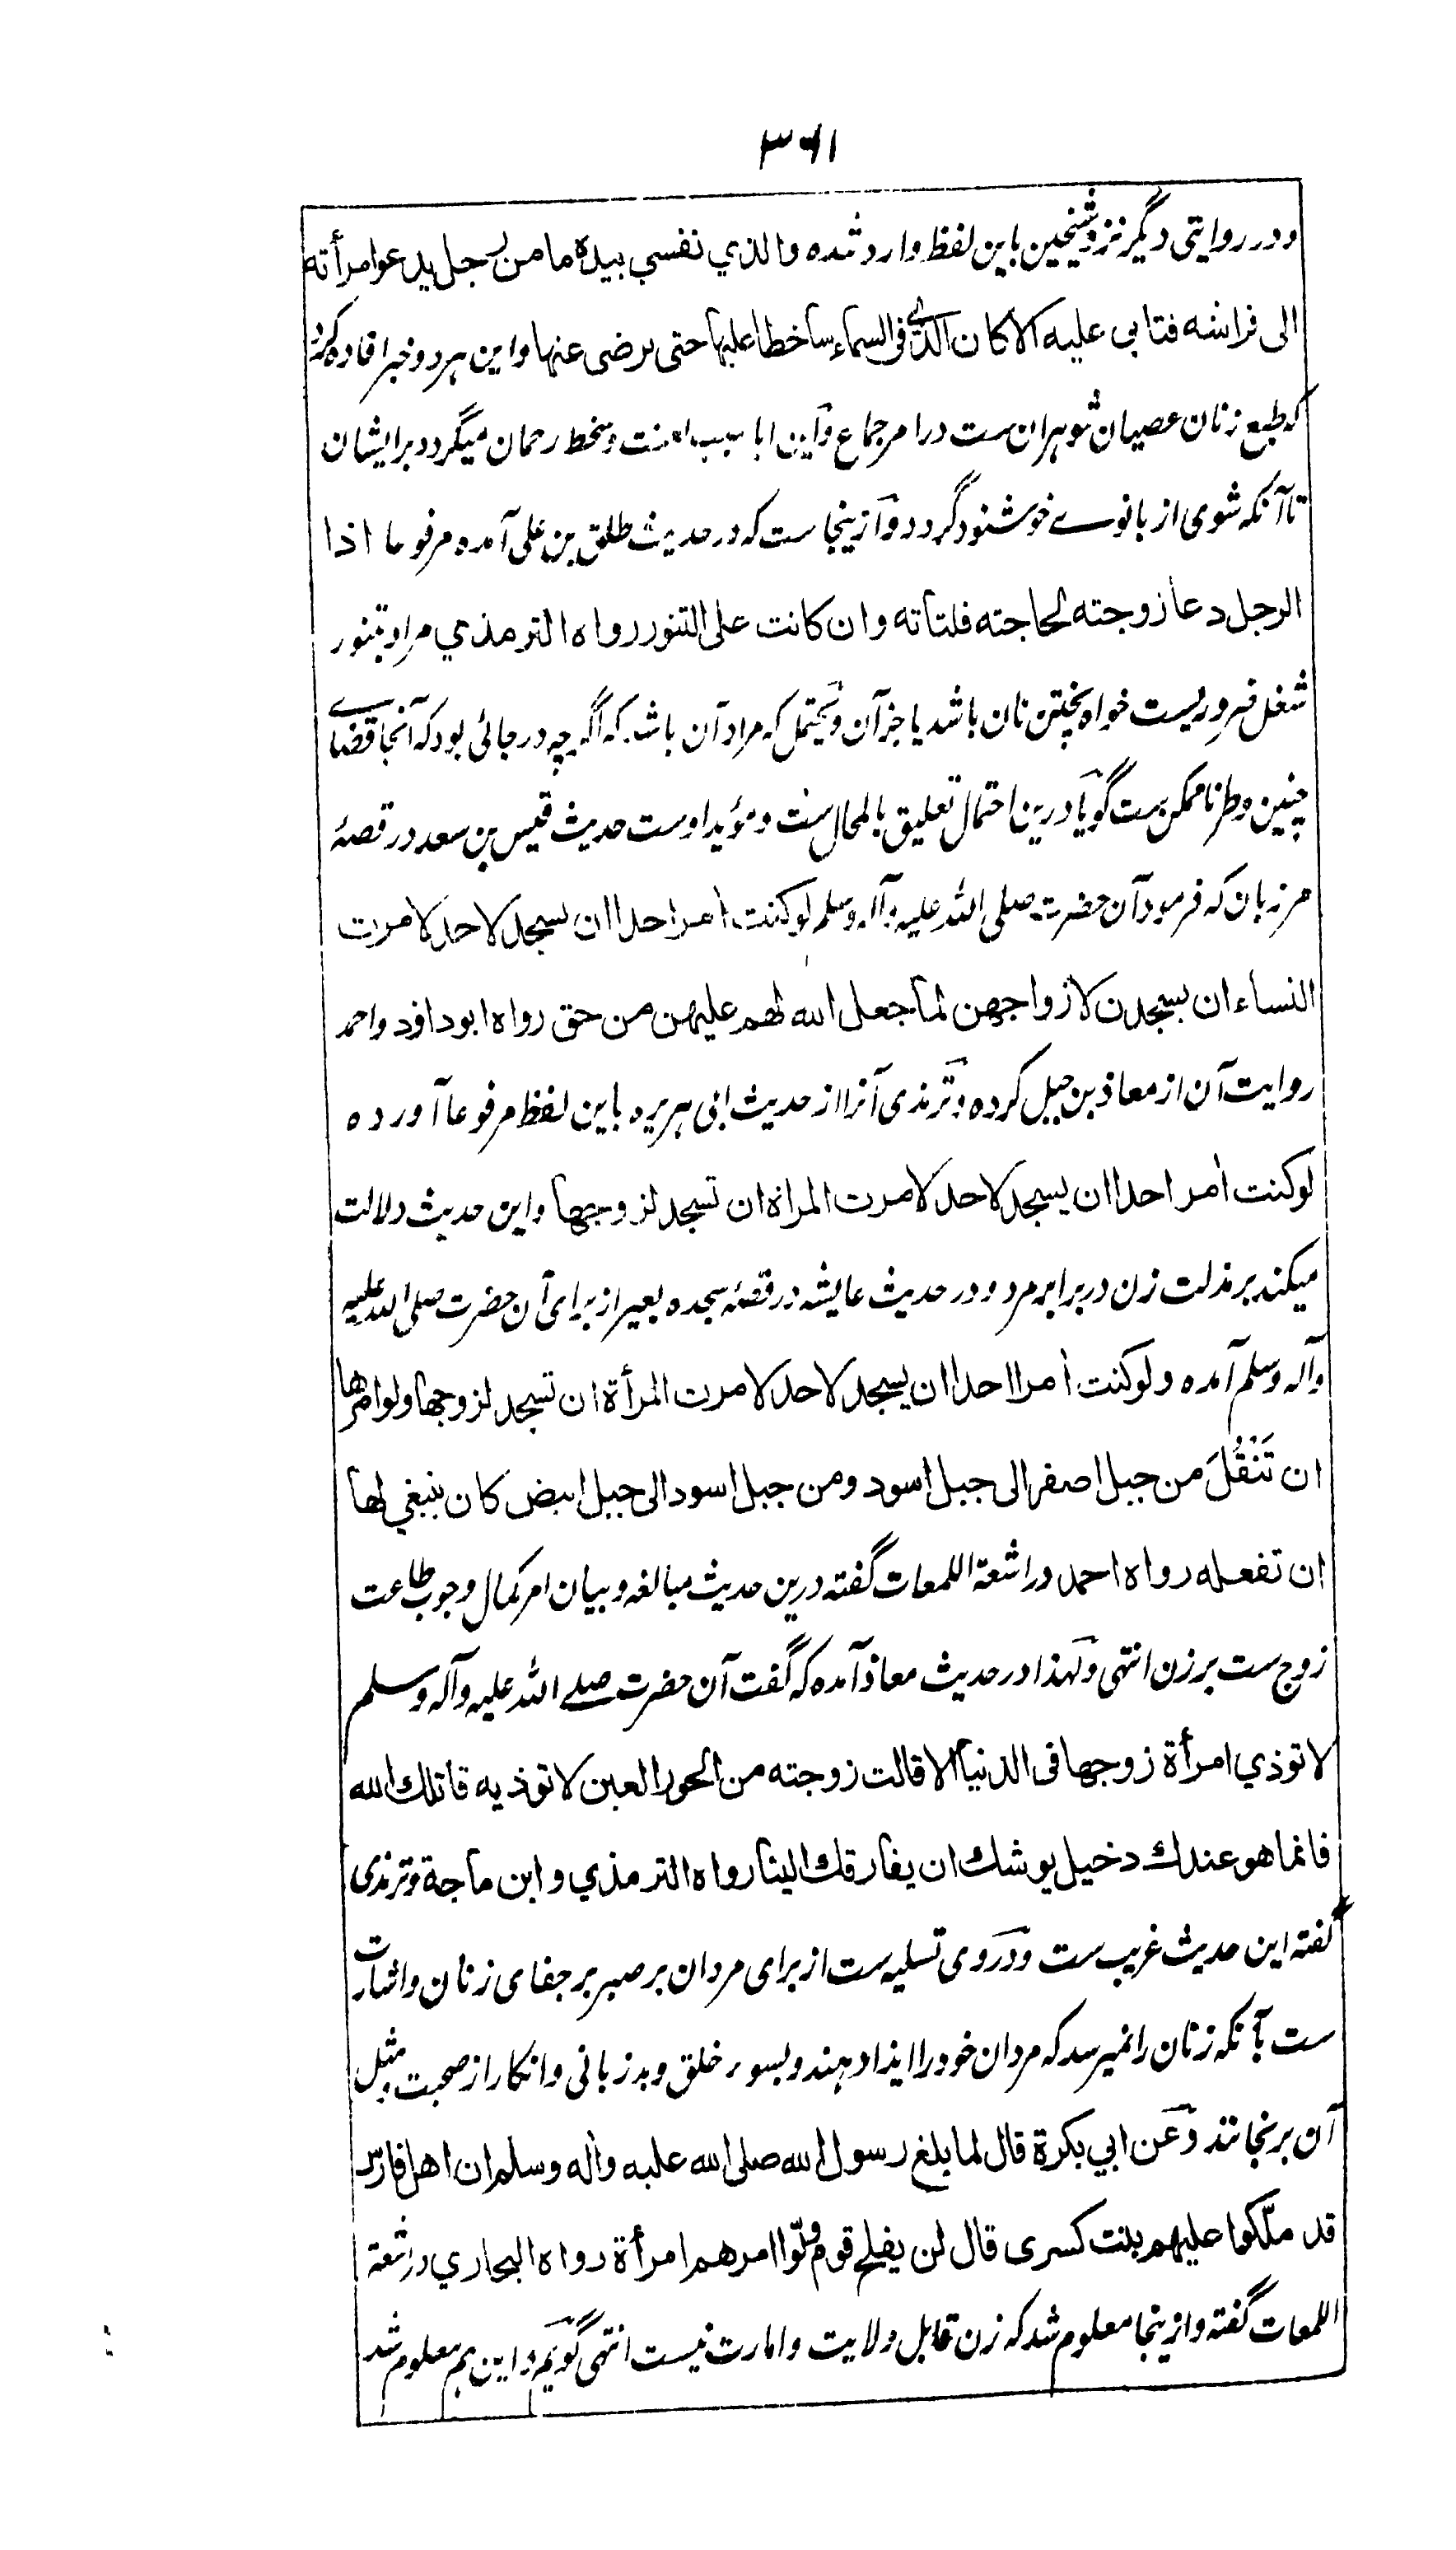 ۳۶۱
ودر روایتی دیگر نزد شیخین باین لفظ وارد شده والذي نفسي بیده ما من رجل یدعو امرأته
الی فراشه فتابی علیه الا کان الذی فی السماء ساخطا علیها حتی یرضی عنها واین هر دو خبر افاده کرد
که طبع زنان عصیان شوهران ست در امر جماع واین ابا سبب لعنت وسخط رحمان میگردد بر ایشان
تا آنکه شوی از بانوے خوشنود گردد وازینجا ست که در حدیث طلق بن علی آمده مرفوعا اذا
الرجل دعا زوجته لحاجته فلتاته وان کانت علی التنور رواه الترمذي مراد بتنور
شغل ضروریست خواه پختن نان باشد یا جز آن ویحتمل که مراد آن باشد که اگرچه در جائی بود که آنجا قضاے
چنین وطر ناممکن ست گویا درین احتمال تعلیق بالمحال ست ومؤید اوست حدیث قیس بن سعد در قصهٔ
مرزبان که فرمود آن حضرت صلی الله علیه وآله وسلم لو کنت امر احدا ان یسجد لاحد لامرت
النساء ان یسجدن لازواجهن لما جعل الله لهم علیهن من حق رواه ابوداود واحمد
روایت آن از معاذ بن جبل کرده وترمذی آنرا از حدیث ابی هریره باین لفظ مرفوعا آورده
لو کنت امر احدا ان یسجد لاحد لامرت المراة ان تسجد لزوجها واین حدیث دلالت
میکند بر مذلت زن در برابر مرد ودر حدیث عایشه در قصهٔ سجده بعیر از برای آن حضرت صلی الله علیه
وآله وسلم آمده ولو کنت أمرا احدا ان یسجد لاحد لامرت المرأة ان تسجد لزوجها ولو امرها
ان تَنْقُلَ من جبل اصفر الی جبل اسود ومن جبل اسود الی جبل ابیض کان ینبغي لها
ان تفعله رواه احمد در اشعة اللمعات گفته درین حدیث مبالغه وبیان امر کمال وجوب طاعت
زوج ست بر زن انتهی ولهذا در حدیث معاذ آمده که گفت آن حضرت صلے الله علیه وآله وسلم
لا توذي امرأة زوجها فی الدنیا الا قالت زوجته من الحور العین لا توذیه قاتلك الله
فانما هو عندك دخیل یوشك ان یفارقك الینا رواه الترمذي وابن ماجة وترمذی
گفته این حدیث غریب ست ودروی تسلیه ست از برای مردان بر صبر بر جفای زنان واشارت
ست بآنکه زنان را نمیرسد که مردان خود را ایذا دهند وبسوء خلق وبدزبانی وانکار از صحبت ومثل
آن برنجانند وعن ابي بکرة قال لما بلغ رسول الله صلی الله علیه واٰله وسلم ان اهل فارس
قد ملّکوا علیهم بنت کسری قال لن یفلح قوم ولّوا امرهم امرأة رواه البخاري در اشعة
اللمعات گفته وازینجا معلوم شد که زن قابل ولایت وامارت نیست انتهی گویم واین هم معلوم شد